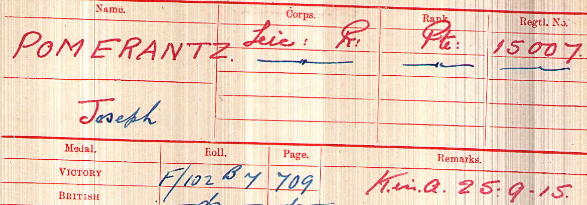 Name. Corps. Rank. Regtl. No.
POMERANTZ. Leic: R: Pte: 15007.
Joseph
Medal. Roll. Page. Remarks.
VICTORY F/102 B7 709 K.in.A. 25-9-15.
BRITISH